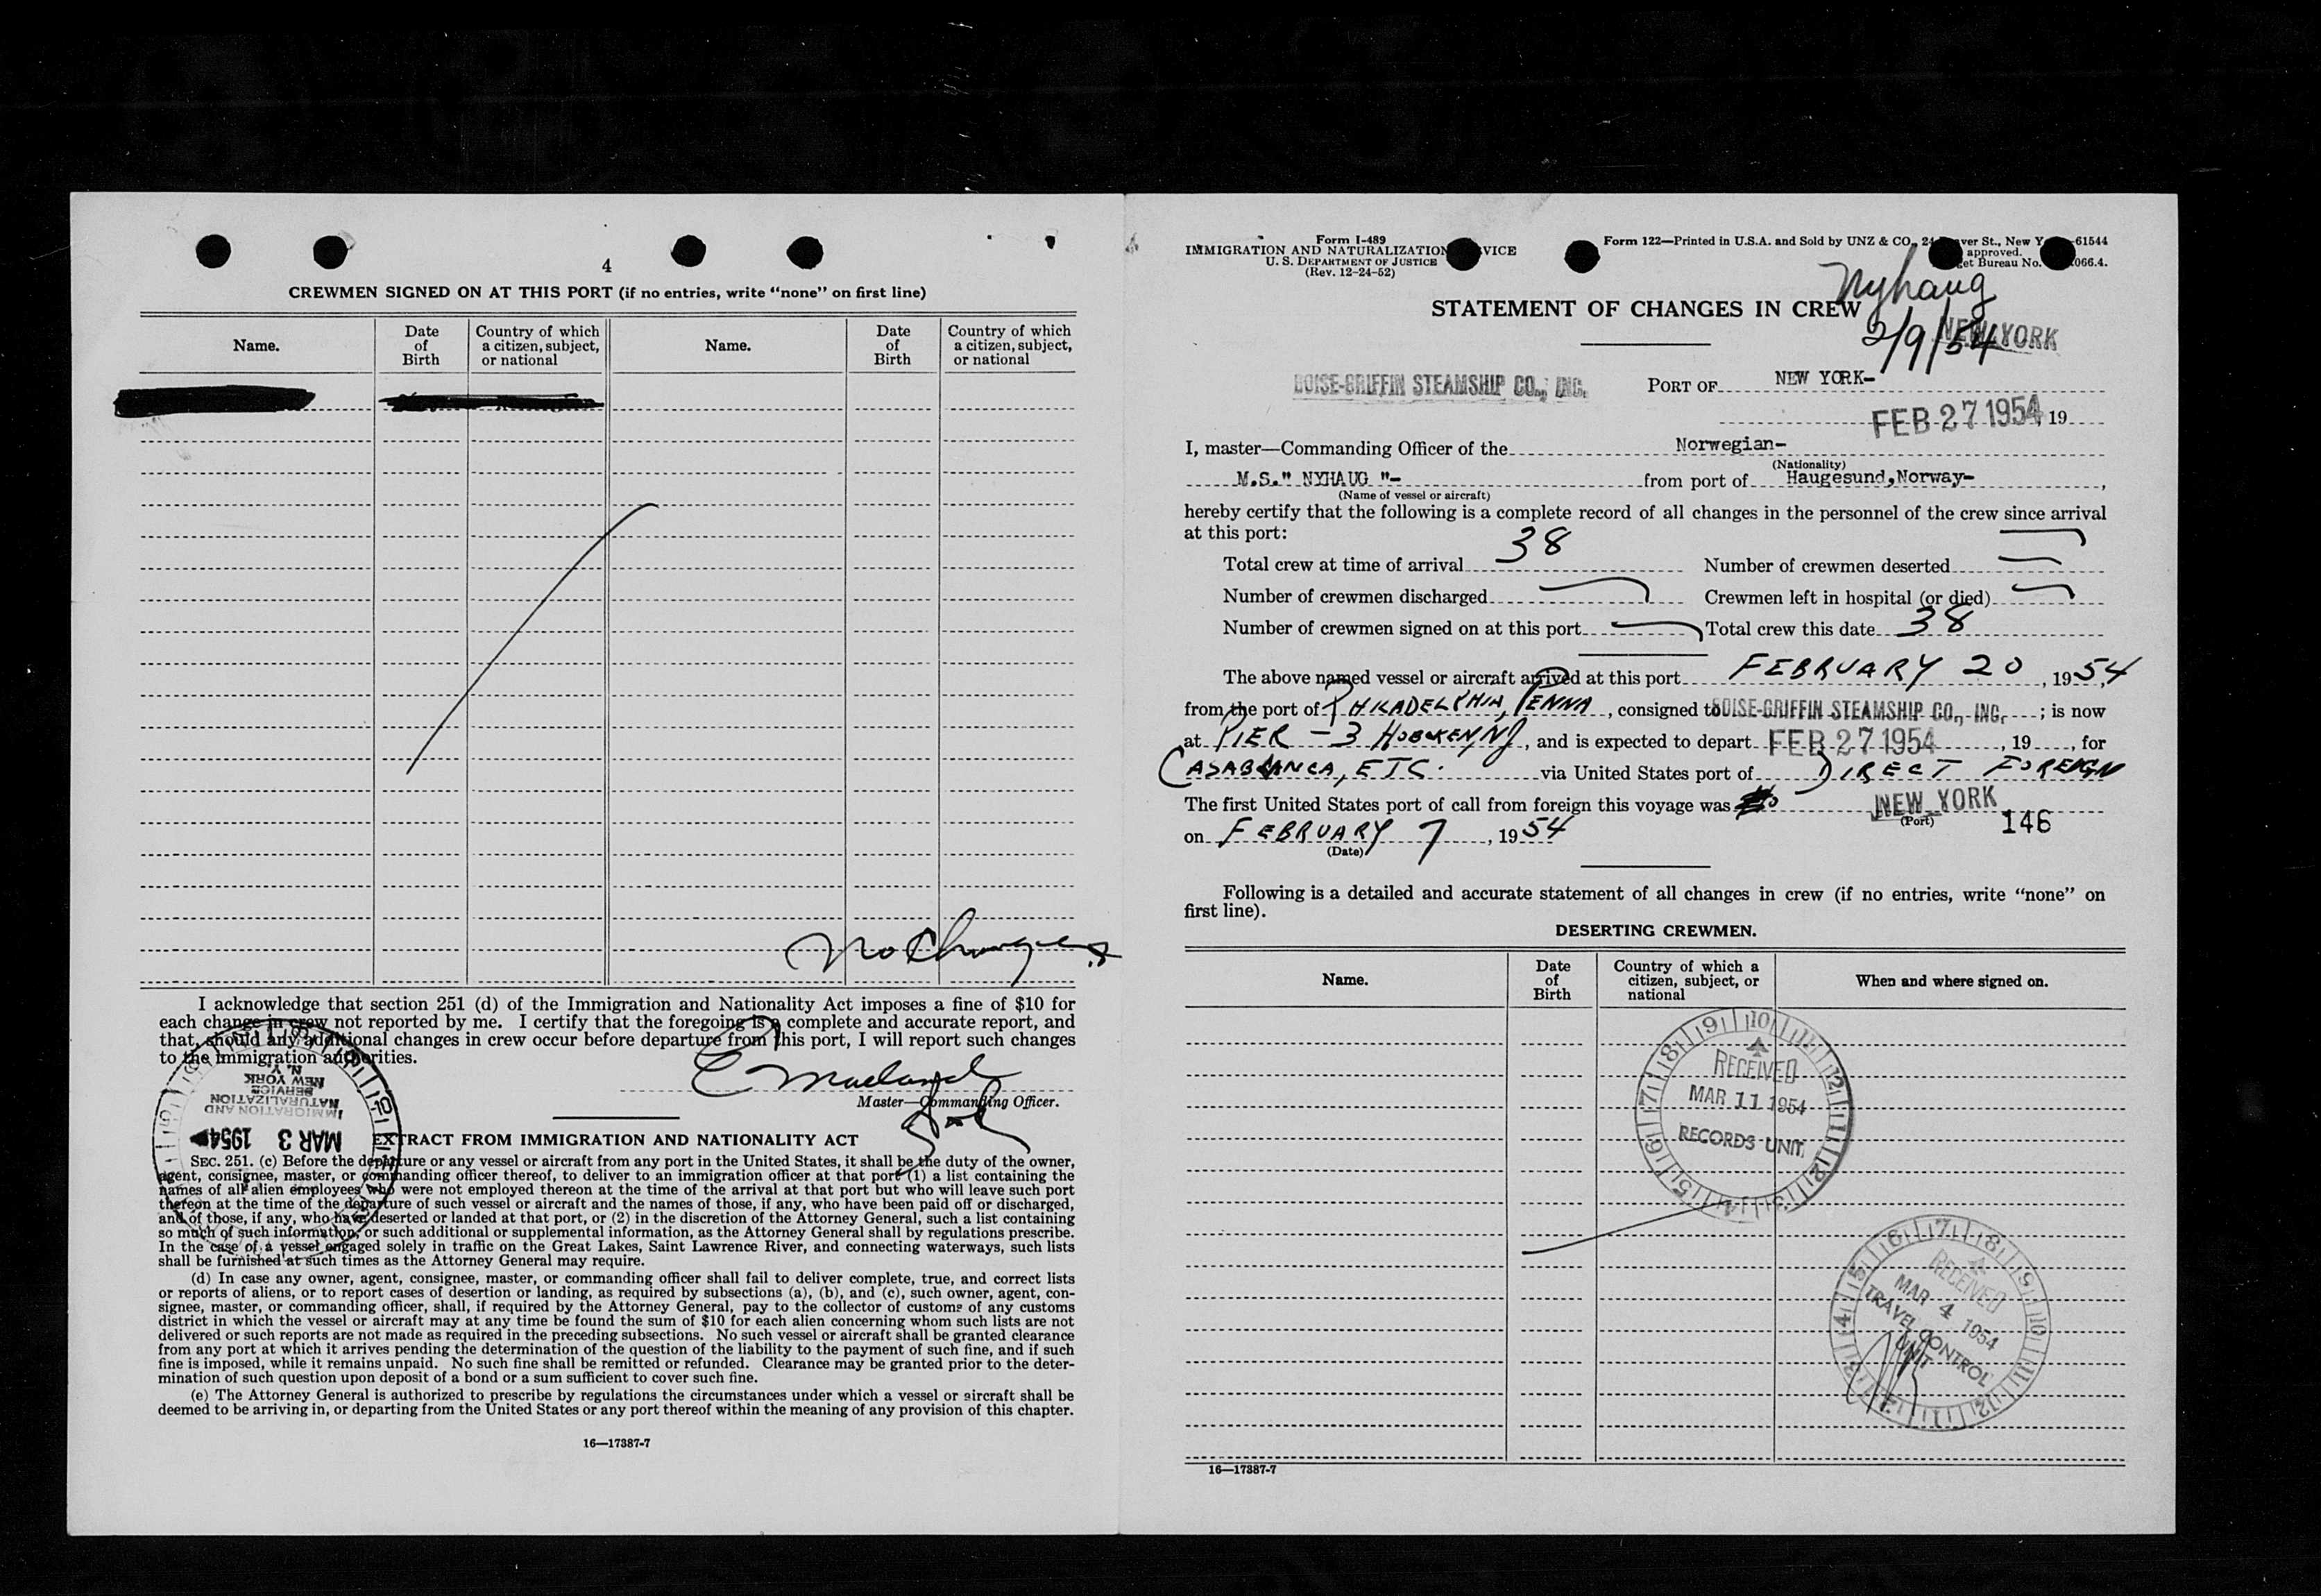 4
CREWMEN SIGNED ON AT THIS PORT (if no entries, write “none” on first line)
Name.
Date of Birth
Country of which a citizen, subject, or national
Name.
Date of Birth
Country of which a citizen, subject, or national
No Changes
I acknowledge that section 251 (d) of the Immigration and Nationality Act imposes a fine of $10 for
each change in crew not reported by me. I certify that the foregoing is a complete and accurate report, and
that, should any additional changes in crew occur before departure from this port, I will report such changes
to the immigration authorities.
Master—Commanding Officer.
IMMIGRATION AND
NATURALIZATION
SERVICE
NEW YORK
N. Y.
MAR 3 1954
EXTRACT FROM IMMIGRATION AND NATIONALITY ACT
SEC. 251. (c) Before the departure or any vessel or aircraft from any port in the United States, it shall be the duty of the owner,
agent, consignee, master, or commanding officer thereof, to deliver to an immigration officer at that port (1) a list containing the
names of all alien employees who were not employed thereon at the time of the arrival at that port but who will leave such port
thereon at the time of the departure of such vessel or aircraft and the names of those, if any, who have been paid off or discharged,
and of those, if any, who have deserted or landed at that port, or (2) in the discretion of the Attorney General, such a list containing
so much of such information, or such additional or supplemental information, as the Attorney General shall by regulations prescribe.
In the case of a vessel engaged solely in traffic on the Great Lakes, Saint Lawrence River, and connecting waterways, such lists
shall be furnished at such times as the Attorney General may require.
(d) In case any owner, agent, consignee, master, or commanding officer shall fail to deliver complete, true, and correct lists
or reports of aliens, or to report cases of desertion or landing, as required by subsections (a), (b), and (c), such owner, agent, con-
signee, master, or commanding officer, shall, if required by the Attorney General, pay to the collector of customs of any customs
district in which the vessel or aircraft may at any time be found the sum of $10 for each alien concerning whom such lists are not
delivered or such reports are not made as required in the preceding subsections. No such vessel or aircraft shall be granted clearance
from any port at which it arrives pending the determination of the question of the liability to the payment of such fine, and if such
fine is imposed, while it remains unpaid. No such fine shall be remitted or refunded. Clearance may be granted prior to the deter-
mination of such question upon deposit of a bond or a sum sufficient to cover such fine.
(e) The Attorney General is authorized to prescribe by regulations the circumstances under which a vessel or aircraft shall be
deemed to be arriving in, or departing from the United States or any port thereof within the meaning of any provision of this chapter.
16—17387-7
Form I-489
IMMIGRATION AND NATURALIZATION VICE
U. S. DEPARTMENT OF JUSTICE
(Rev. 12-24-52)
Form 122—Printed in U.S.A. and Sold by UNZ & CO., 24 ver St., New Y 61544
approved.
et Bureau No. 066.4.
Nyhaug
2/9/54
NEW YORK
STATEMENT OF CHANGES IN CREW
BOISE-GRIFFIN STEAMSHIP CO., INC.
PORT OF NEW YORK-
FEB 27 1954, 19
I, master—Commanding Officer of the Norwegian-
(Nationality)
M.S." NYHAUG "- from port of Haugesund,Norway- ,
(Name of vessel or aircraft)
hereby certify that the following is a complete record of all changes in the personnel of the crew since arrival
at this port:
Total crew at time of arrival 38 Number of crewmen deserted
Number of crewmen discharged Crewmen left in hospital (or died)
Number of crewmen signed on at this port Total crew this date 38
The above named vessel or aircraft arrived at this port FEBRUARY 20, 1954,
from the port of PHILADELPHIA, PENNA, consigned to BOISE-GRIFFIN STEAMSHIP CO., INC. ; is now
at PIER - 3 HOBOKEN, NJ, and is expected to depart FEB 27 1954, 19 , for
CASABLANCA, ETC. via United States port of DIRECT FOREIGN
The first United States port of call from foreign this voyage was NEW YORK
(Port)
146
on FEBRUARY 7, 1954
(Date)
Following is a detailed and accurate statement of all changes in crew (if no entries, write “none” on
first line).
DESERTING CREWMEN.
Name.
Date of Birth
Country of which a citizen, subject, or national
When and where signed on.
RECEIVED
MAR 11 1954
RECORDS UNIT
RECEIVED
MAR 4 1954
TRAVEL CONTROL
UNIT
16—17387-7